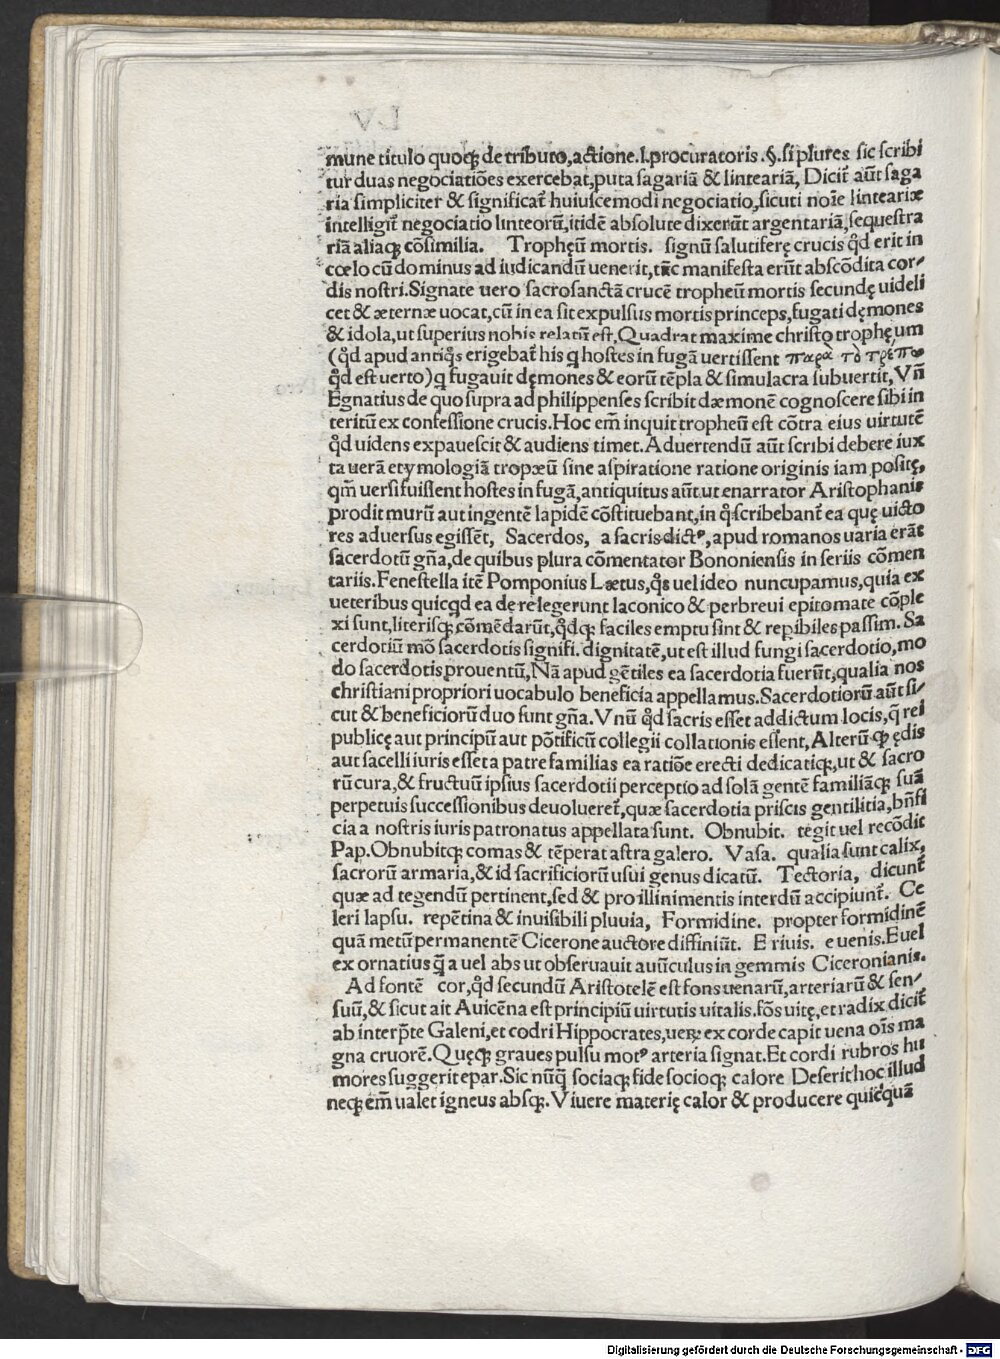 mune titulo quoqꝫ de tributo,actione.l.procuratoris.§.si plures sic scribi
tur duas negociatiões exercebat,puta sagariã & linteariã, Dicit̃ aũt saga
ria simpliciter & significat̃ huiuscemodi negociatio,sicuti noĩe linteariæ
intelligit̃ negociatio linteorũ,itidẽ absolute dixerũt argentariã,sequestra
riã aliaqꝫ cõsimilia. Trophęũ mortis. signũ salutiferę crucis qd̉ erit in
cœlo cũ dominus ad iudicandũ uenerit,tũc manifesta erũt abscõdita cor⸗
dis nostri.Signate uero sacrosanctã crucẽ tropheũ mortis secundę uideli
cet & æternæ uocat,cũ in ea sit expulsus mortis princeps,fugati dęmones
& idola,ut superius nobis relatũ est.Quadrat maxime christo trophę,um
(qd̉ apud antiqͦs erigebat̃ his q̃ hostes in fugã uertissent παρὰ τὸ τρέπω
qd̉ est uerto)q̃ fugauit dęmones & eorũ tẽpla & simulacra subuertit, Vñ
Egnatius de quo supra ad philippenses scribit dæmonẽ cognoscere sibi in
teritũ ex confessione crucis.Hoc em̃ inquit tropheũ est cõtra eius uirtutẽ
qd̉ uidens expauescit & audiens timet.Aduertendũ aũt scribi debere iux
ta uerã etymologiã tropæũ sine aspiratione ratione originis iam positę,
qm̃ uersi fuissent hostes in fugã,antiquitus aũt ut enarrator Aristophanis
prodit murũ aut ingentẽ lapidẽ cõstituebant,in qͦ scribebant̃ ea quę uicto
res aduersus egissẽt, Sacerdos, a sacris dictꝰ,apud romanos uaria erãt
sacerdotũ gña,de quibus plura cõmentator Bononiensis in seriis cõmen
tariis.Fenestella itẽ Pomponius Lætus,qͦs uel ideo nuncupamus,quia ex
ueteribus quicqd ea de re legerunt laconico & perbreui epitomate cõple
xi sunt,literisqꝫ cõmẽdarũt,qd̉qꝫ faciles emptu sint & rep̱ibiles passim. Sa
cerdotiũ mõ sacerdotis signifi. dignitatẽ,ut est illud fungi sacerdotio,mo
do sacerdotis prouentũ,Nã apud gẽtiles ea sacerdotia fuerũt,qualia nos
christiani propriori uocabulo beneficia appellamus.Sacerdotiorũ aũt si⸗
cut & beneficiorũ duo sunt gña.Vnũ qd̉ sacris esset addictum locis,q̃ rei
publicę aut principũ aut põtificũ collegii collationis essent,Alterũ qꝫ ędis
aut sacelli iuris esset a patre familias ea ratiõe erecti dedicatiqꝫ,ut & sacro
rũ cura,& fructuũ ipsius sacerdotii perceptio ad solã gentẽ familiãqꝫ suã
perpetuis successionibus deuolueret̃,quæ sacerdotia priscis gentilitia,bñfi
cia a nostris iuris patronatus appellata sunt. Obnubit. tegit uel recõdit
Pap.Obnubitqꝫ comas & tẽperat astra galero. Vasa. qualia sunt calix,
sacrorũ armaria,& id sacrificiorũ usui genus dicatũ. Tectoria, dicunt̃
quæ ad tegendũ pertinent,sed & pro illinimentis interdũ accipiunt̃. Ce
leri lapsu. repẽtina & inuisibili pluuia, Formidine. propter formidinẽ
quã metũ permanentẽ Cicerone auctore diffiniũt. E riuis. e uenis.E uel
ex ornatius q̃ a uel abs ut obseruauit auũculus in gemmis Ciceronianis.
Ad fontẽ cor,qd̉ secundũ Aristotelẽ est fons uenarũ,arteriarũ & sen⸗
suũ,& sicut ait Auicẽna est principiũ uirtutis uitalis.fõs uitę,et radix dicit̃
ab interp̃te Galeni,et codri Hippocrates,ueꝝ ex corde capit uena oĩs ma
gna cruorẽ.Quęqꝫ graues pulsu motꝰ arteria signat.Et cordi rubros hu
mores suggerit epar.Sic nũq̃ sociaqꝫ fide socioqꝫ calore Deserit hoc illud
neqꝫ em̃ ualet igneus absqꝫ.Viuere materię calor & producere quicquã
Digitalisierung gefördert durch die Deutsche Forschungsgemeinschaft - DFG